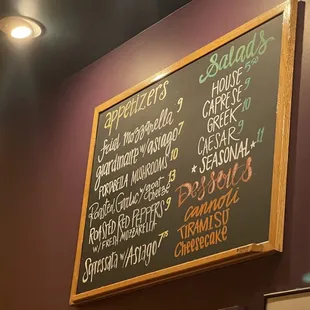 appetizers
Fried mozzarella 9
giardinaire w/asiago 7
PORTABELLA MUSHROOMS 10
Roasted Garlic w/goat cheese 13
ROASTED RED PEPPERS 9
w/ FRESH MOZZARELLA
Sopressata w/Asiago 7
Salads
HOUSE 5.50
CAPRESE 9
GREEK 9
CAESAR 9
* SEASONAL * 11
Desserts
Cannoli
TIRAMISU
Cheesecake